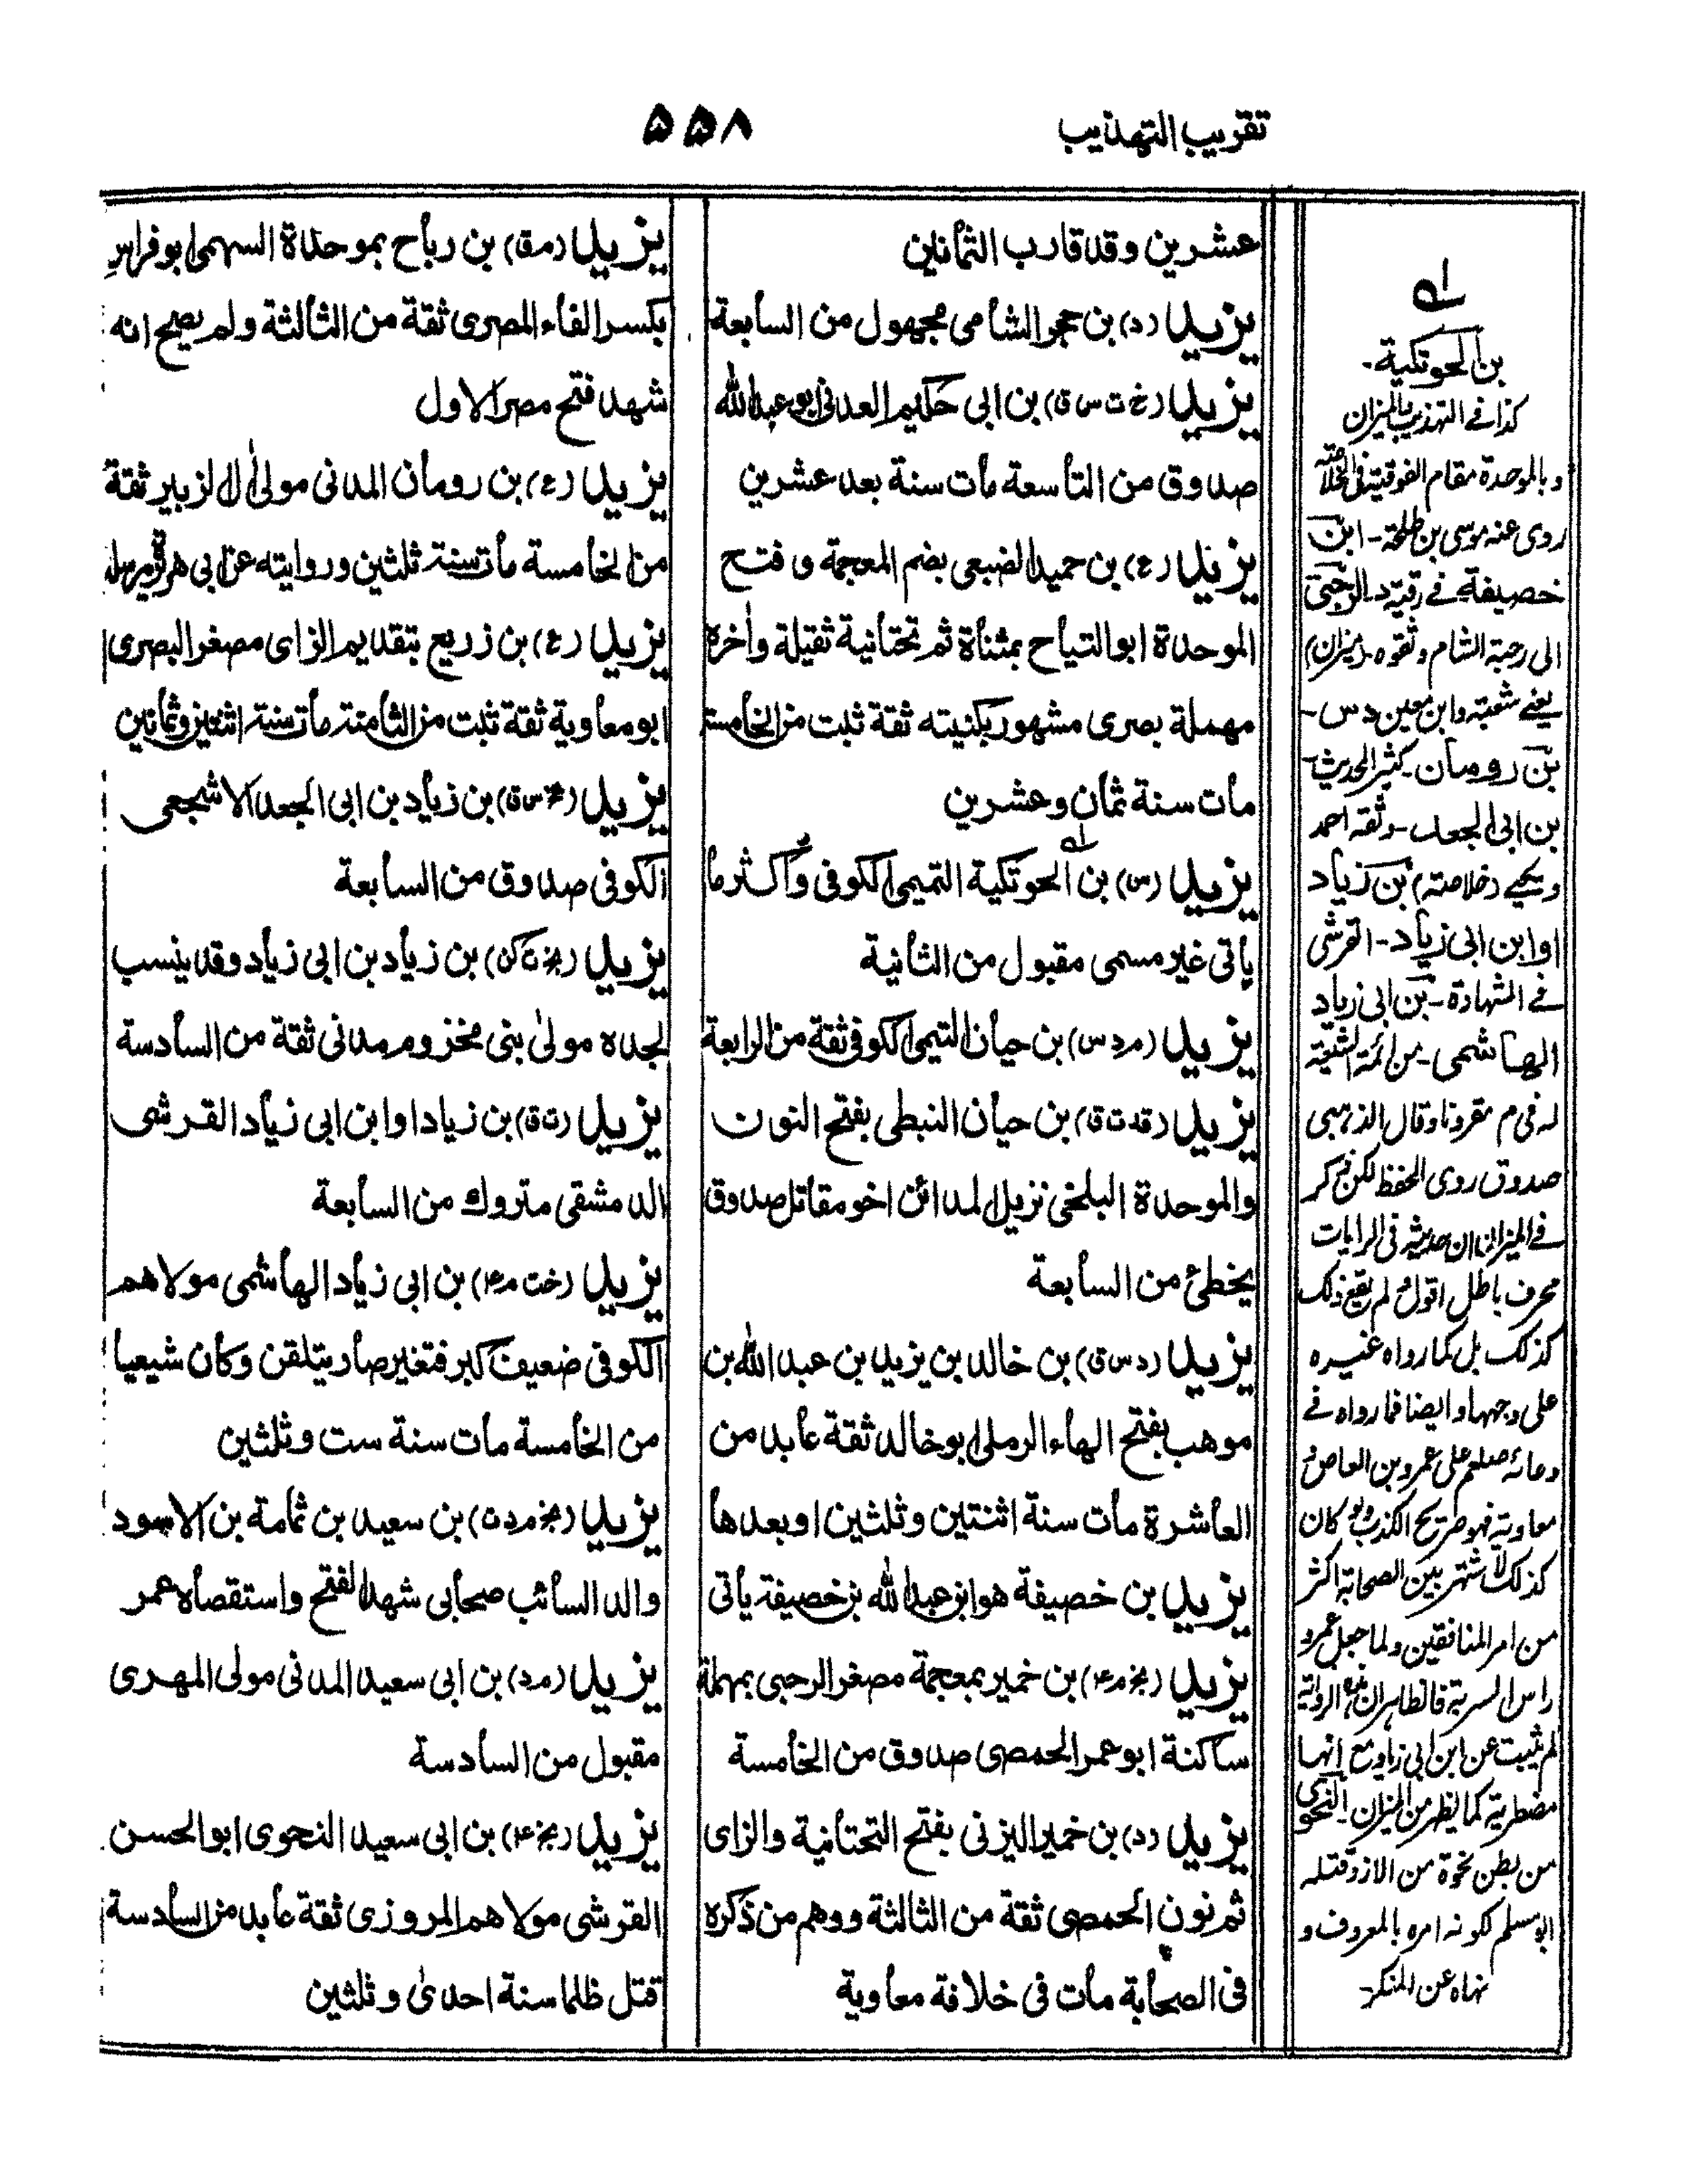 تقريب التهذيب
۵۵۸
عشرين وقد قارب الثمانين
يزيد (د) بن حجر الشامى مجهول من السابعة
يزيد (خ ت س ق) بن ابى حكيم العدنى ابو عبد الله
صدوق من التاسعة مات سنة بعد عشرين
يزيد (ع) بن حميد الضبعى بضم المعجمة و فتح
الموحدة ابو التياح بمثناة ثم تحتانية ثقيلة واٰخره
مهملة بصرى مشهور بكنيته ثقة ثبت من الخامسة
مات سنة ثمان وعشرين
يزيد (س) بن الحوتكية التميمى الكوفى واكثر ما
ياتى غير مسمى مقبول من الثانية
يزيد (م د س) بن حيان التيمى الكوفى ثقة من الرابعة
يزيد (قد ت ق) بن حيان النبطى بفتح النون
والموحدة البلخى نزيل المدائن اخو مقاتل صدوق
يخطئ من السابعة
يزيد (د س ق) بن خالد بن يزيد بن عبد الله بن
موهب بفتح الهاء الرملى ابو خالد ثقة عابد من
العاشرة مات سنة اثنتين وثلثين او بعدها
يزيد بن خصيفة هو ابن عبد الله بن خصيفة ياتى
يزيد (بخ م ۴) بن خمير بمعجمة مصغر الرحبى بمهملة
ساكنة ابو عمر الحمصى صدوق من الخامسة
يزيد (د) بن خمير اليزنى بفتح التحتانية والزاى
ثم نون الحمصى ثقة من الثالثة ووهم من ذكره
فى الصحابة مات فى خلافة معاوية
يزيد (م ق) بن رباح بموحدة السهمى ابو فراس
بكسر الفاء المصرى ثقة من الثالثة ولم يصح انه
شهد فتح مصر الاول
يزيد (ع) بن رومان المدنى مولىٰ اٰل الزبير ثقة
من الخامسة مات سنة ثلثين وروايته عن ابى هريرة مرسلة
يزيد (ع) بن زريع بتقديم الزاى مصغر البصرى
ابو معاوية ثقة ثبت من الثامنة مات سنة اثنتين وثمانين
يزيد (عخ س ق) بن زياد بن ابى الجعد الاشجعى
الكوفى صدوق من السابعة
يزيد (بخ ت كن) بن زياد بن ابى زياد وقد ينسب
لجده مولىٰ بنى مخزوم مدنى ثقة من السادسة
يزيد (ت ق) بن زياد او ابن ابى زياد القرشى
الدمشقى متروك من السابعة
يزيد (خت م ۴) بن ابى زياد الهاشمى مولاهم
الكوفى ضعيف كبر فتغير صار يتلقن وكان شيعيا
من الخامسة مات سنة ست وثلثين
يزيد (بخ م د ت) بن سعيد بن ثمامة بن الاسود
والد السائب صحابى شهد الفتح واستقضاه عمر
يزيد (مد) بن ابى سعيد المدنى مولى المهرى
مقبول من السادسة
يزيد (بخ ۴) بن ابى سعيد النحوى ابو الحسن
القرشى مولاهم المروزى ثقة عابد من السادسة
قتل ظلما سنة احدىٰ وثلثين
بن الحوتكية-
كذا فے التهذيب والميزان
وبالموحدة مقام الفوقية فى الخلاصة
روى عنه موسى بن طلحة- ابن
خصيفة فے رقية د- الرحبى
الى رحبة الشام وثقوه- (ميزان)
يعنے شعبة وابن معين د س-
بن رومان- كثير الحديث-
بن ابى الجعد- وثقه احمد
ويحيے (خلاصة) بن زياد
او ابن ابى زياد- القرشى
فے الشهادة- بن ابى زياد
الهاشمى- من ائمة الشيعة
له فى م مقرونا وقال الذهبى
صدوق ردى الحفظ لكن ذكر
فے الميزان ان حديثه فى الرايات
محرف باطل اقول لم يقع ذلك
كذلك بل كما رواه غيره
على وجهها وايضا فما رواه فے
دعائه صلعم على عمرو بن العاص و
معاوية فهو صريح الكذب ولو كان
كذلك لاشتهر بين الصحابة اكثر
من امر المنافقين ولما جعل عمرو
راس السرية فالظاهر ان هذه الرواية
لم تثبت عن ابن ابى زياد مع انها
مضطربة كما يظهر من الميزان- النحوى
من بطن نحوة من الازد قتله
ابو مسلم لكونه امره بالمعروف و
نهاه عن المنكر-